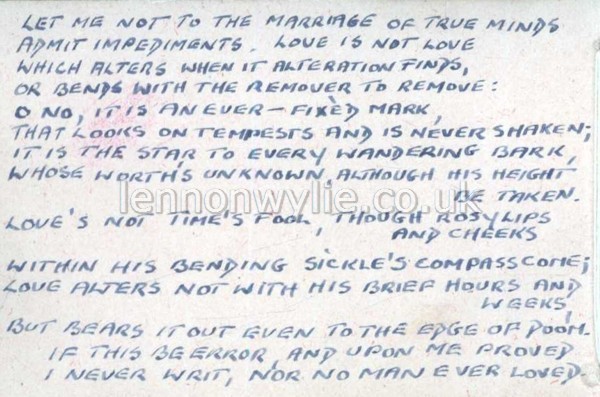 LET ME NOT TO THE MARRIAGE OF TRUE MINDS
ADMIT IMPEDIMENTS. LOVE IS NOT LOVE
WHICH ALTERS WHEN IT ALTERATION FINDS,
OR BENDS WITH THE REMOVER TO REMOVE:
O NO, IT IS AN EVER-FIXÈD MARK,
THAT LOOKS ON TEMPESTS AND IS NEVER SHAKEN;
IT IS THE STAR TO EVERY WANDERING BARK,
WHOSE WORTH'S UNKNOWN, ALTHOUGH HIS HEIGHT
lennonwylie.co.uk
BE TAKEN.
LOVE'S NOT TIME'S FOOL, THOUGH ROSY LIPS
AND CHEEKS
WITHIN HIS BENDING SICKLE'S COMPASS COME;
LOVE ALTERS NOT WITH HIS BRIEF HOURS AND
WEEKS,
BUT BEARS IT OUT EVEN TO THE EDGE OF DOOM.
IF THIS BE ERROR, AND UPON ME PROVED
I NEVER WRIT, NOR NO MAN EVER LOVED.